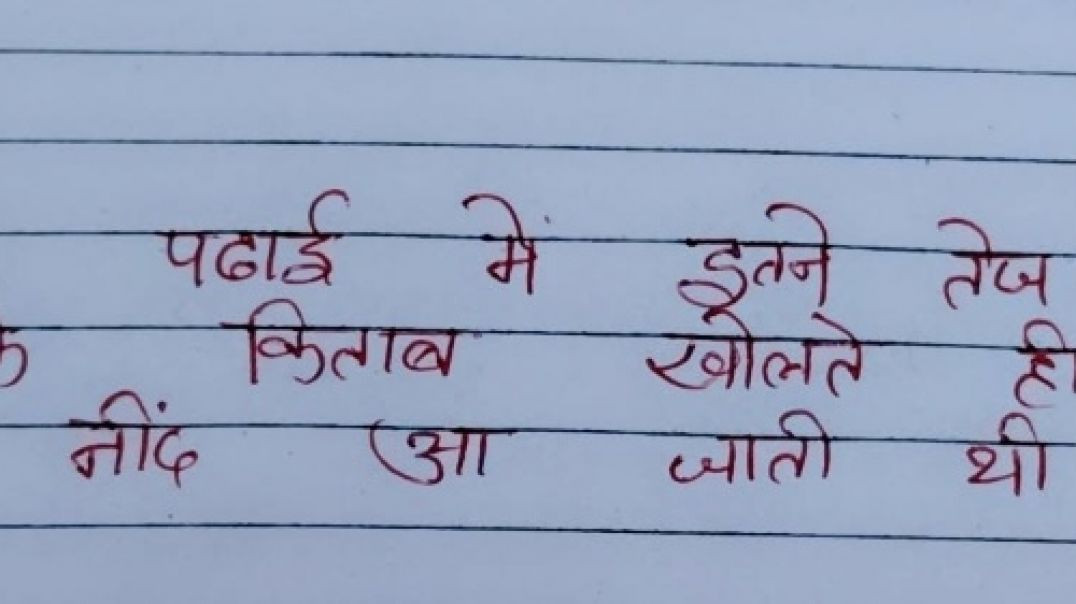 पढाई में इतने तेज
किताब खोलते ही
नींद आ जाती थी